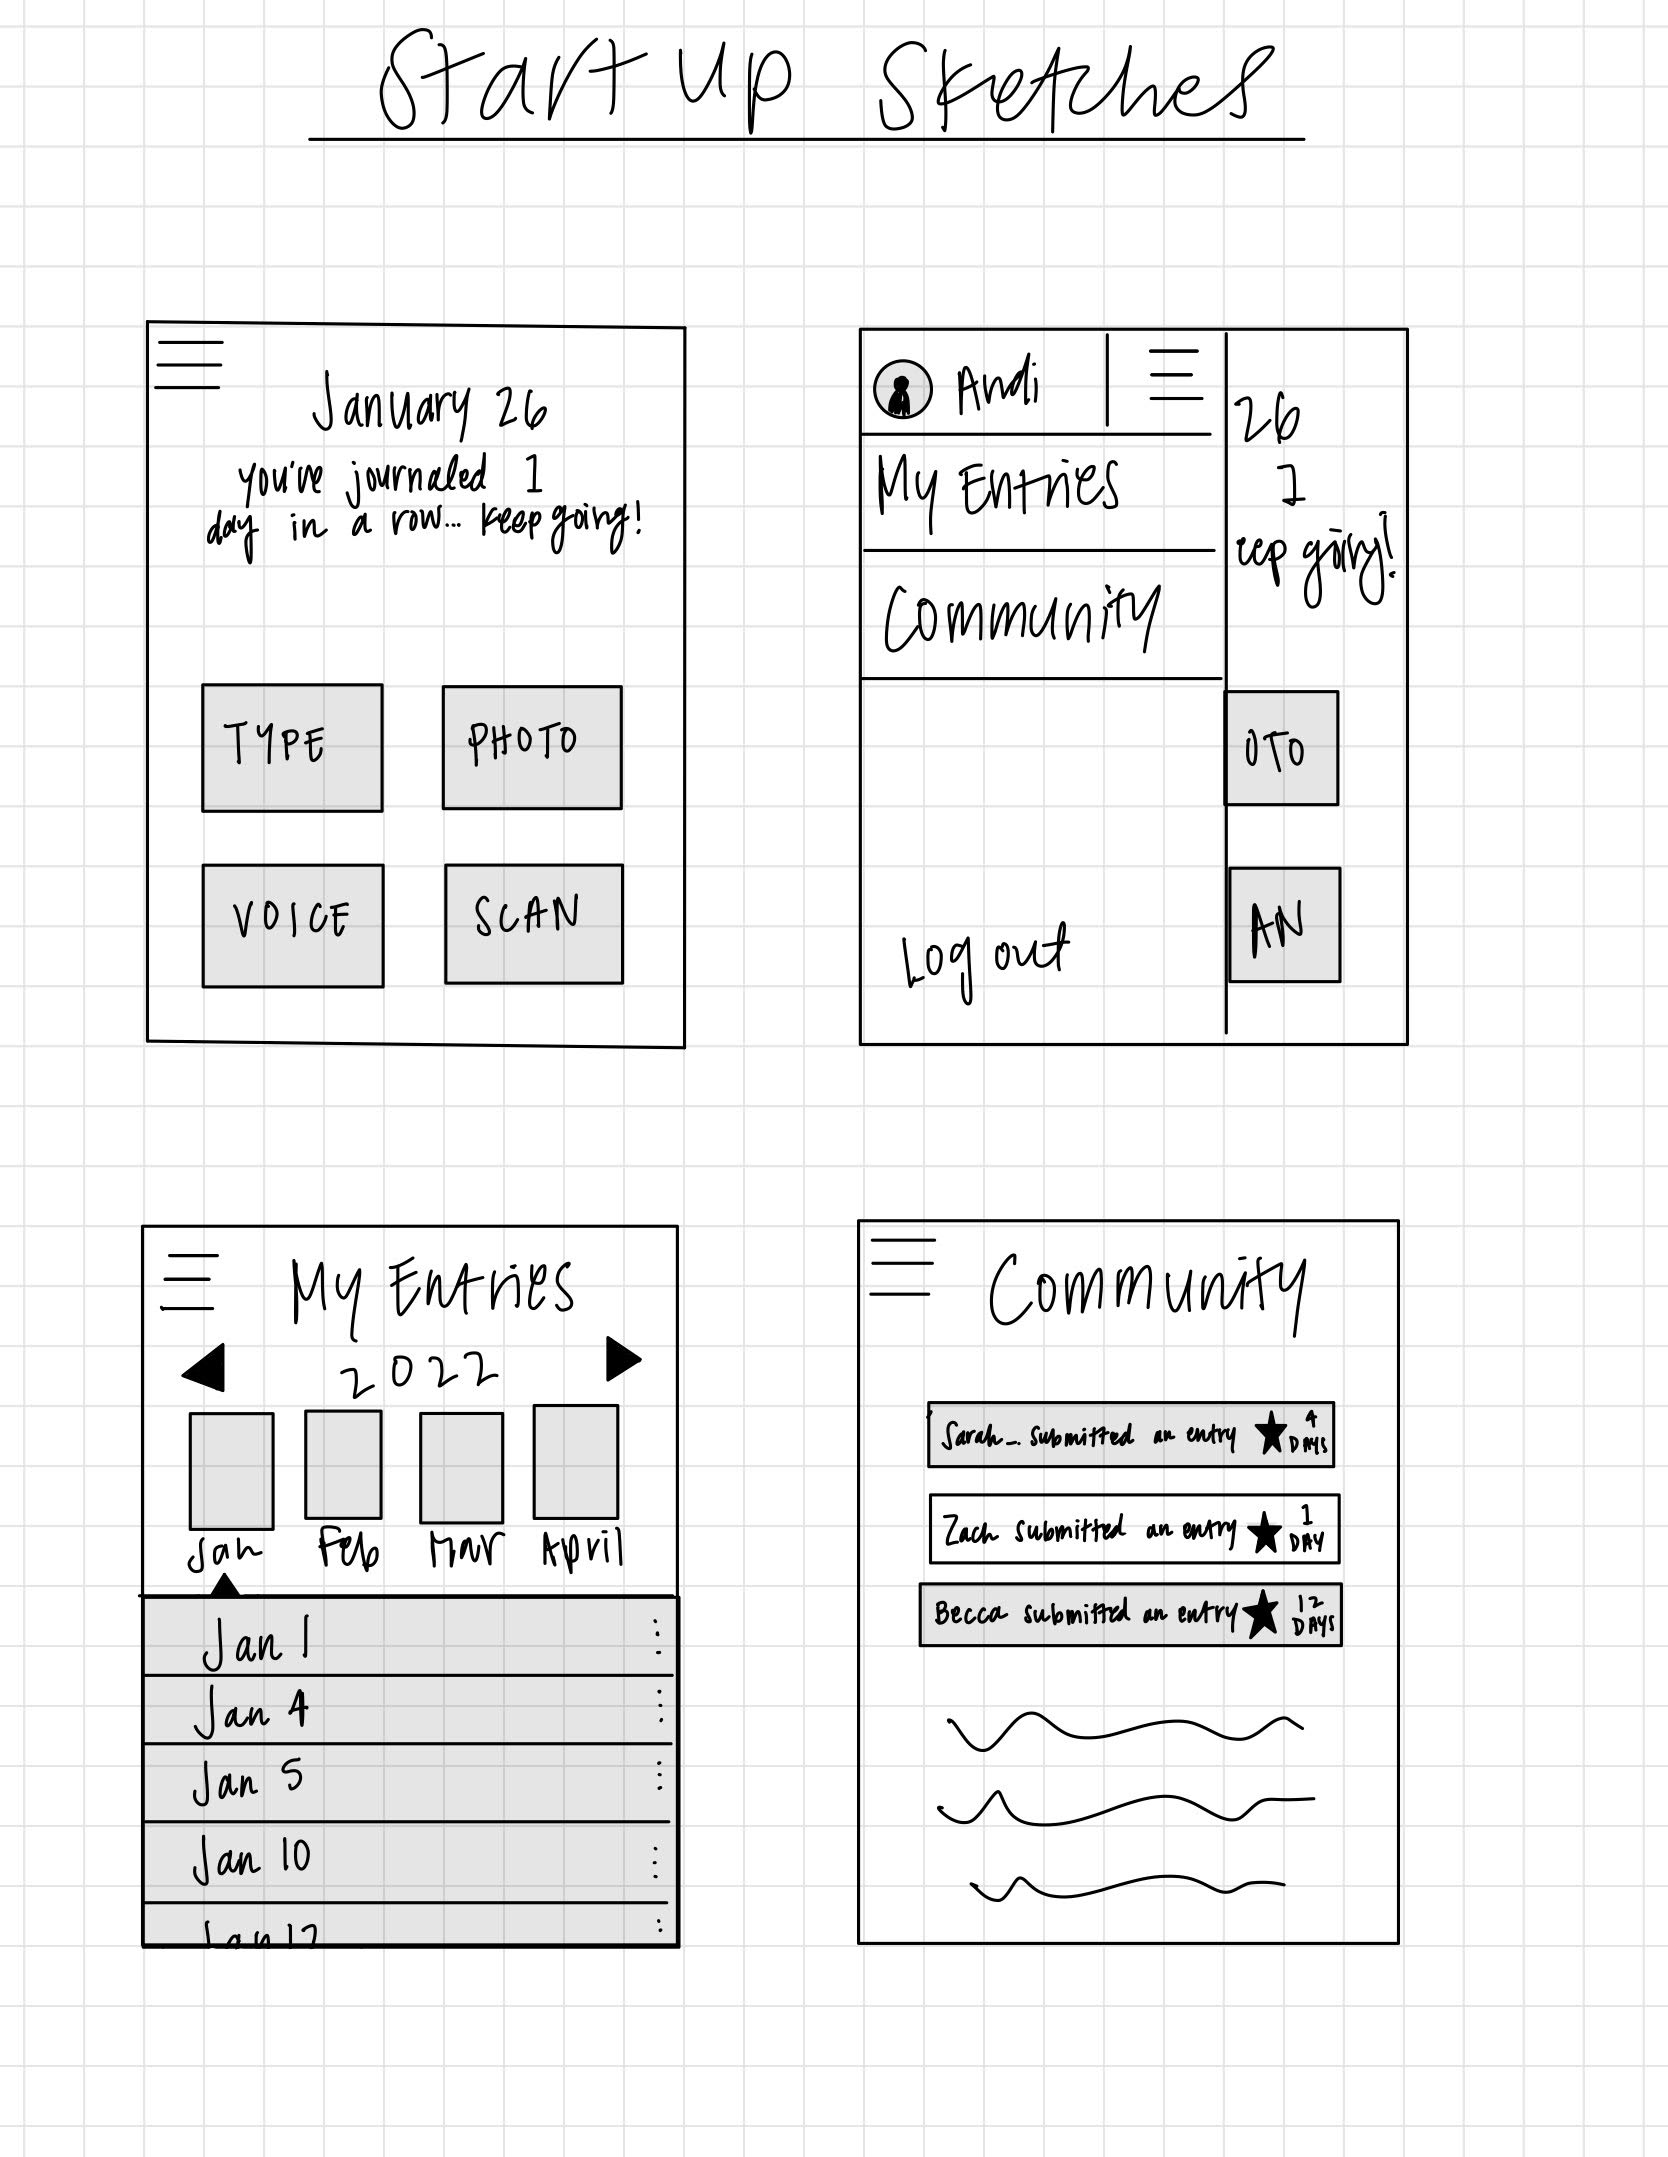 Start up Sketches
January 26
you've journaled 1
day in a row... keep going!
TYPE
PHOTO
VOICE
SCAN
Andi
26
My Entries
1
eep going!
Community
OTO
AN
Log out
My Entries
2022
Jan Feb Mar April
Jan 1
Jan 4
Jan 5
Jan 10
Jan 12
Community
Sarah... submitted an entry ★ 4
DAYS
Zach submitted an entry ★ 1
DAY
Becca submitted an entry ★ 12
DAYS